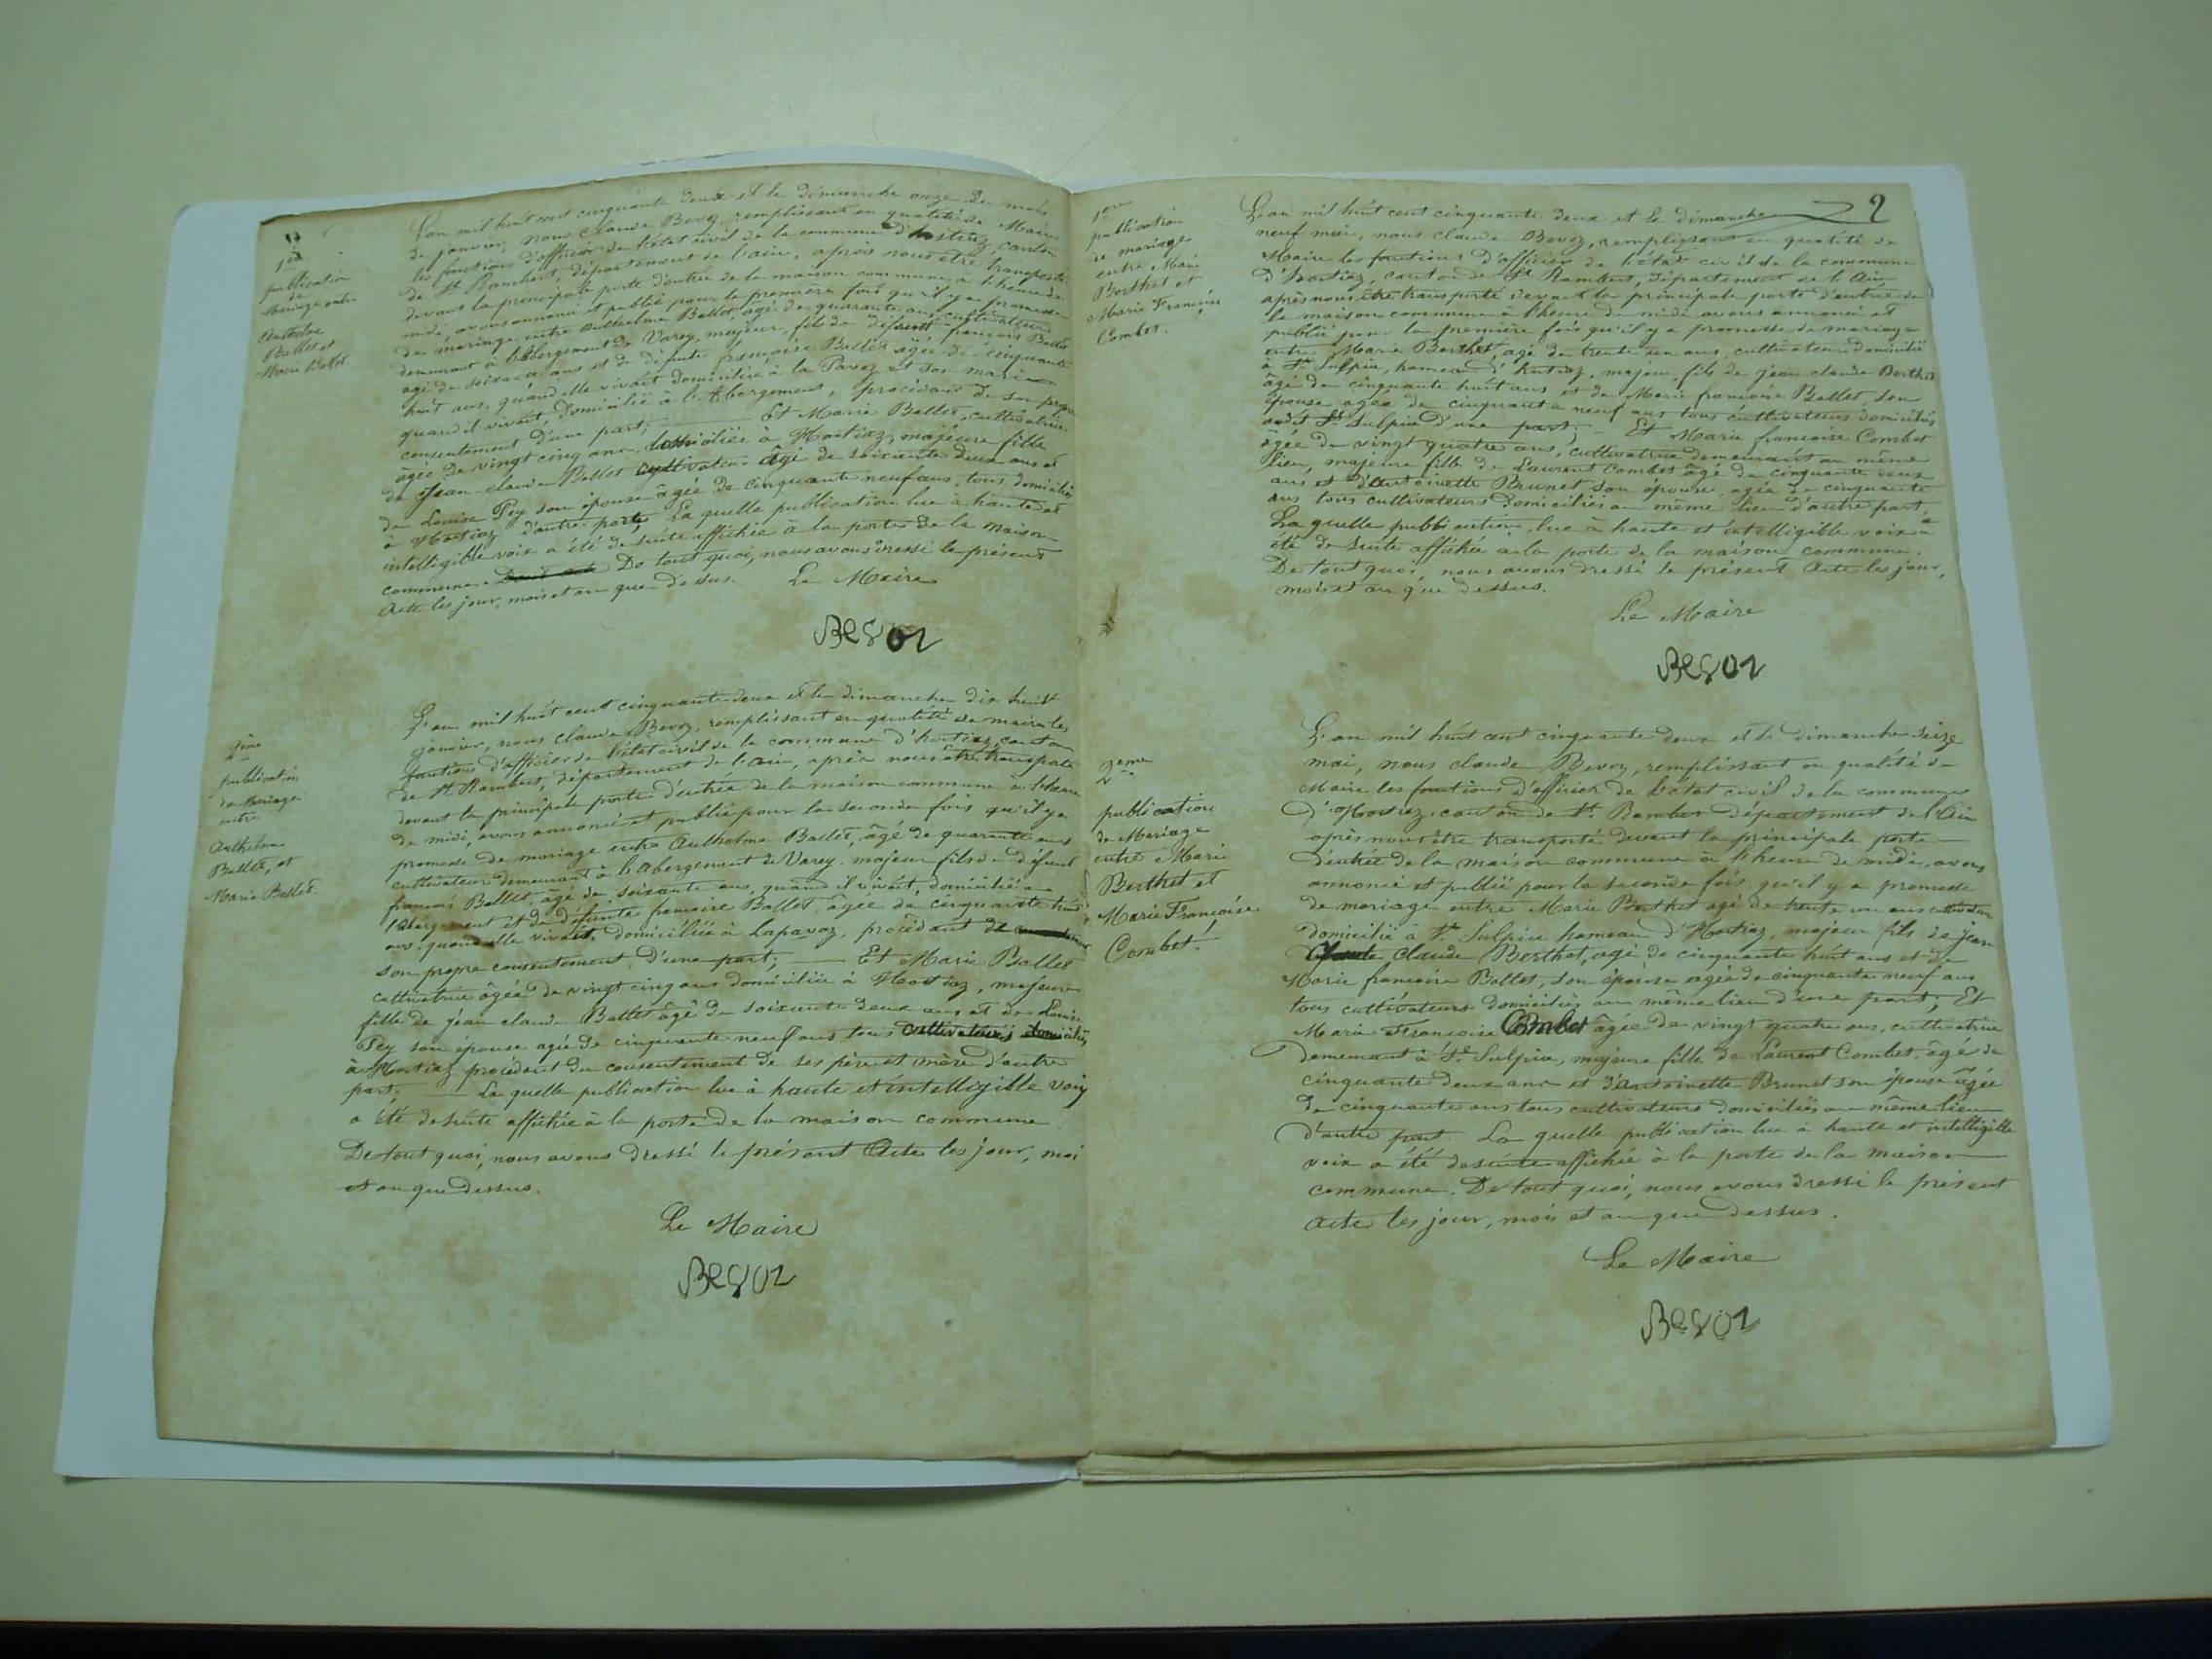 1ère
publication
de
Mariage entre
Anthelme
Ballet et
Marie Ballet.
L'an mil huit cent cinquante deux et le dimanche onze du mois
de janvier, nous Claude Bevoz, remplissant en qualité de Maire
les fonctions d'officier de l'état civil de la commune d'hostiaz, canton
de St Rambert, département de l'ain, après nous être transporté
devant la principale porte d'entrée de la maison commune à l'heure de
midi, avons annoncé et publié pour la première fois qu'il y a promesse
de mariage entre Anthelme Ballet, agé de quarante ans, cultivateur
demeurant à l'Abergement de Varey, majeur, fils de défunt francois Ballet
agé de soixante ans et de défunte françoise Ballet âgée de cinquante
huit ans, quand elle vivait domiciliée à la Pavoz et son mari
quand il vivait, domicilié à l'Abergement, procédant de son propre
consentement d'une part; Et Marie Ballet, cultivatrice
âgée de vingt cinq ans, domiciliée à Hostiaz, majeure fille
de Jean claude Ballet cultivateur âgé de soixante deux ans et
de Louise Pey son épouse âgée de cinquante neuf ans, tous domiciliés
à Hostiaz d'autre part, La quelle publication lue à haute et
intelligible voix a été de suite affichée à la porte de la maison
commune. De tout quoi, nous avons dressé le présent
Acte les jour, mois et an que dessus. Le Maire
Bevoz
2ème
publication
de Mariage
entre
Anthelme
Ballet, et
Marie Ballet.
L'an mil huit cent cinquante deux et le dimanche dix huit
janvier, nous claude Bevoz, remplissant en qualité de maire les
fonctions d'officier de l'état civil de la commune d'hostiaz, canton
de St Rambert, département de l'ain, après nous être transporté
devant la principale porte d'entrée de la maison commune à l'heure
de midi, avons annoncé et publié pour la seconde fois qu'il y a
promesse de mariage entre Anthelme Ballet, âgé de quarante ans
cultivateur demeurant à l'Abergement de Varey, majeur fils de défunt
francois Ballet, âgé de soixante ans, quand il vivait, domicilié à
l'Abergement et de défunte francoise Ballet, âgée de cinquante huit
ans, quand elle vivait, domiciliée à Lapavoz, procédant de
son propre consentement d'une part; Et Marie Ballet
cultivatrice âgée de vingt cinq ans domiciliée à Hostiaz, majeure
fille de jean claude Ballet âgé de soixante deux ans et de Louise
Pey son épouse agée de cinquante neuf ans tous cultivateurs domiciliés
à Hostiaz procédant du consentement de ses père et mère d'autre
part; La quelle publication lue à haute et intelligible voix
a été de suite affichée à la porte de la maison commune
De tout quoi, nous avons dressé le présent Acte les jour, moi
et an que dessus.
Le Maire
Bevoz
2
1ère
publication
de mariage
entre Marie
Berthet et
Marie Françoise
Combet.
L'an mil huit cent cinquante deux et le dimanche
neuf mai, nous claude Bevoz, remplissant en qualité de
Maire les fonctions d'officier de l'état civil de la commune
d'hostiaz, canton de St Rambert, département de l'Ain
après nous être transporté devant la principale porte d'entrée de
la maison commune à l'heure de midi avons annoncé et
publié pour la première fois qu'il y a promesse de mariage
entre Marie Berthet, agé de trente un ans, cultivateur domicilié
à St Sulpice, hameau d'hostiaz, majeur, fils de jean claude Berthet
âgé de cinquante huit ans et de Marie francoise Ballet, son
épouse agée de cinquante neuf ans tous cultivateurs domiciliés
audit St Sulpice d'une part; Et Marie francoise Combet
âgée de vingt quatre ans, cultivatrice demeurant au même
lieu, majeure fille de Laurent Combet âgé de cinquante deux
ans et d'antoinette Brunet son épouse, agée de cinquante
ans tous cultivateurs domiciliés au même lieu d'autre part,
La quelle publication, lue à haute et intelligible voix a
été de suite affichée à la porte de la maison commune.
De tout quoi, nous avons dressé le présent Acte les jour,
mois et an que dessus.
Le Maire
Bevoz
2ème
publication
de Mariage
entre Marie
Berthet et
Marie Françoise
Combet.
L'an mil huit cent cinquante deux et le dimanche seize
mai, nous claude Bevoz, remplissant en qualité de
Maire les fonctions d'officier de l'état civil de la commune
d'Hostiaz, canton de St Rambert département de l'Ain
après nous être transporté devant la principale porte
d'entrée de la maison commune à l'heure de midi, avons
annoncé et publié pour la seconde fois qu'il y a promesse
de mariage entre Marie Berthet agé de trente un ans cultivateur
domicilié à St Sulpice hameau d'Hostiaz, majeur fils de Jean
Claude Berthet, agé de cinquante huit ans et de
Marie francoise Ballet, son épouse agée de cinquante neuf ans
tous cultivateurs domiciliés au même lieu d'une part; Et
Marie Francoise Combet âgée de vingt quatre ans, cultivatrice
demeurant à St Sulpice, majeure fille de Laurent Combet, âgé de
cinquante deux ans et d'antoinette Brunet son épouse âgée
de cinquante ans tous cultivateurs domiciliés au même lieu
d'autre part. La quelle publication lue à haute et intelligible
voix a été de suite affichée à la porte de la maison
commune. De tout quoi, nous avons dressé le présent
Acte les jour, mois et an que dessus.
Le Maire
Bevoz